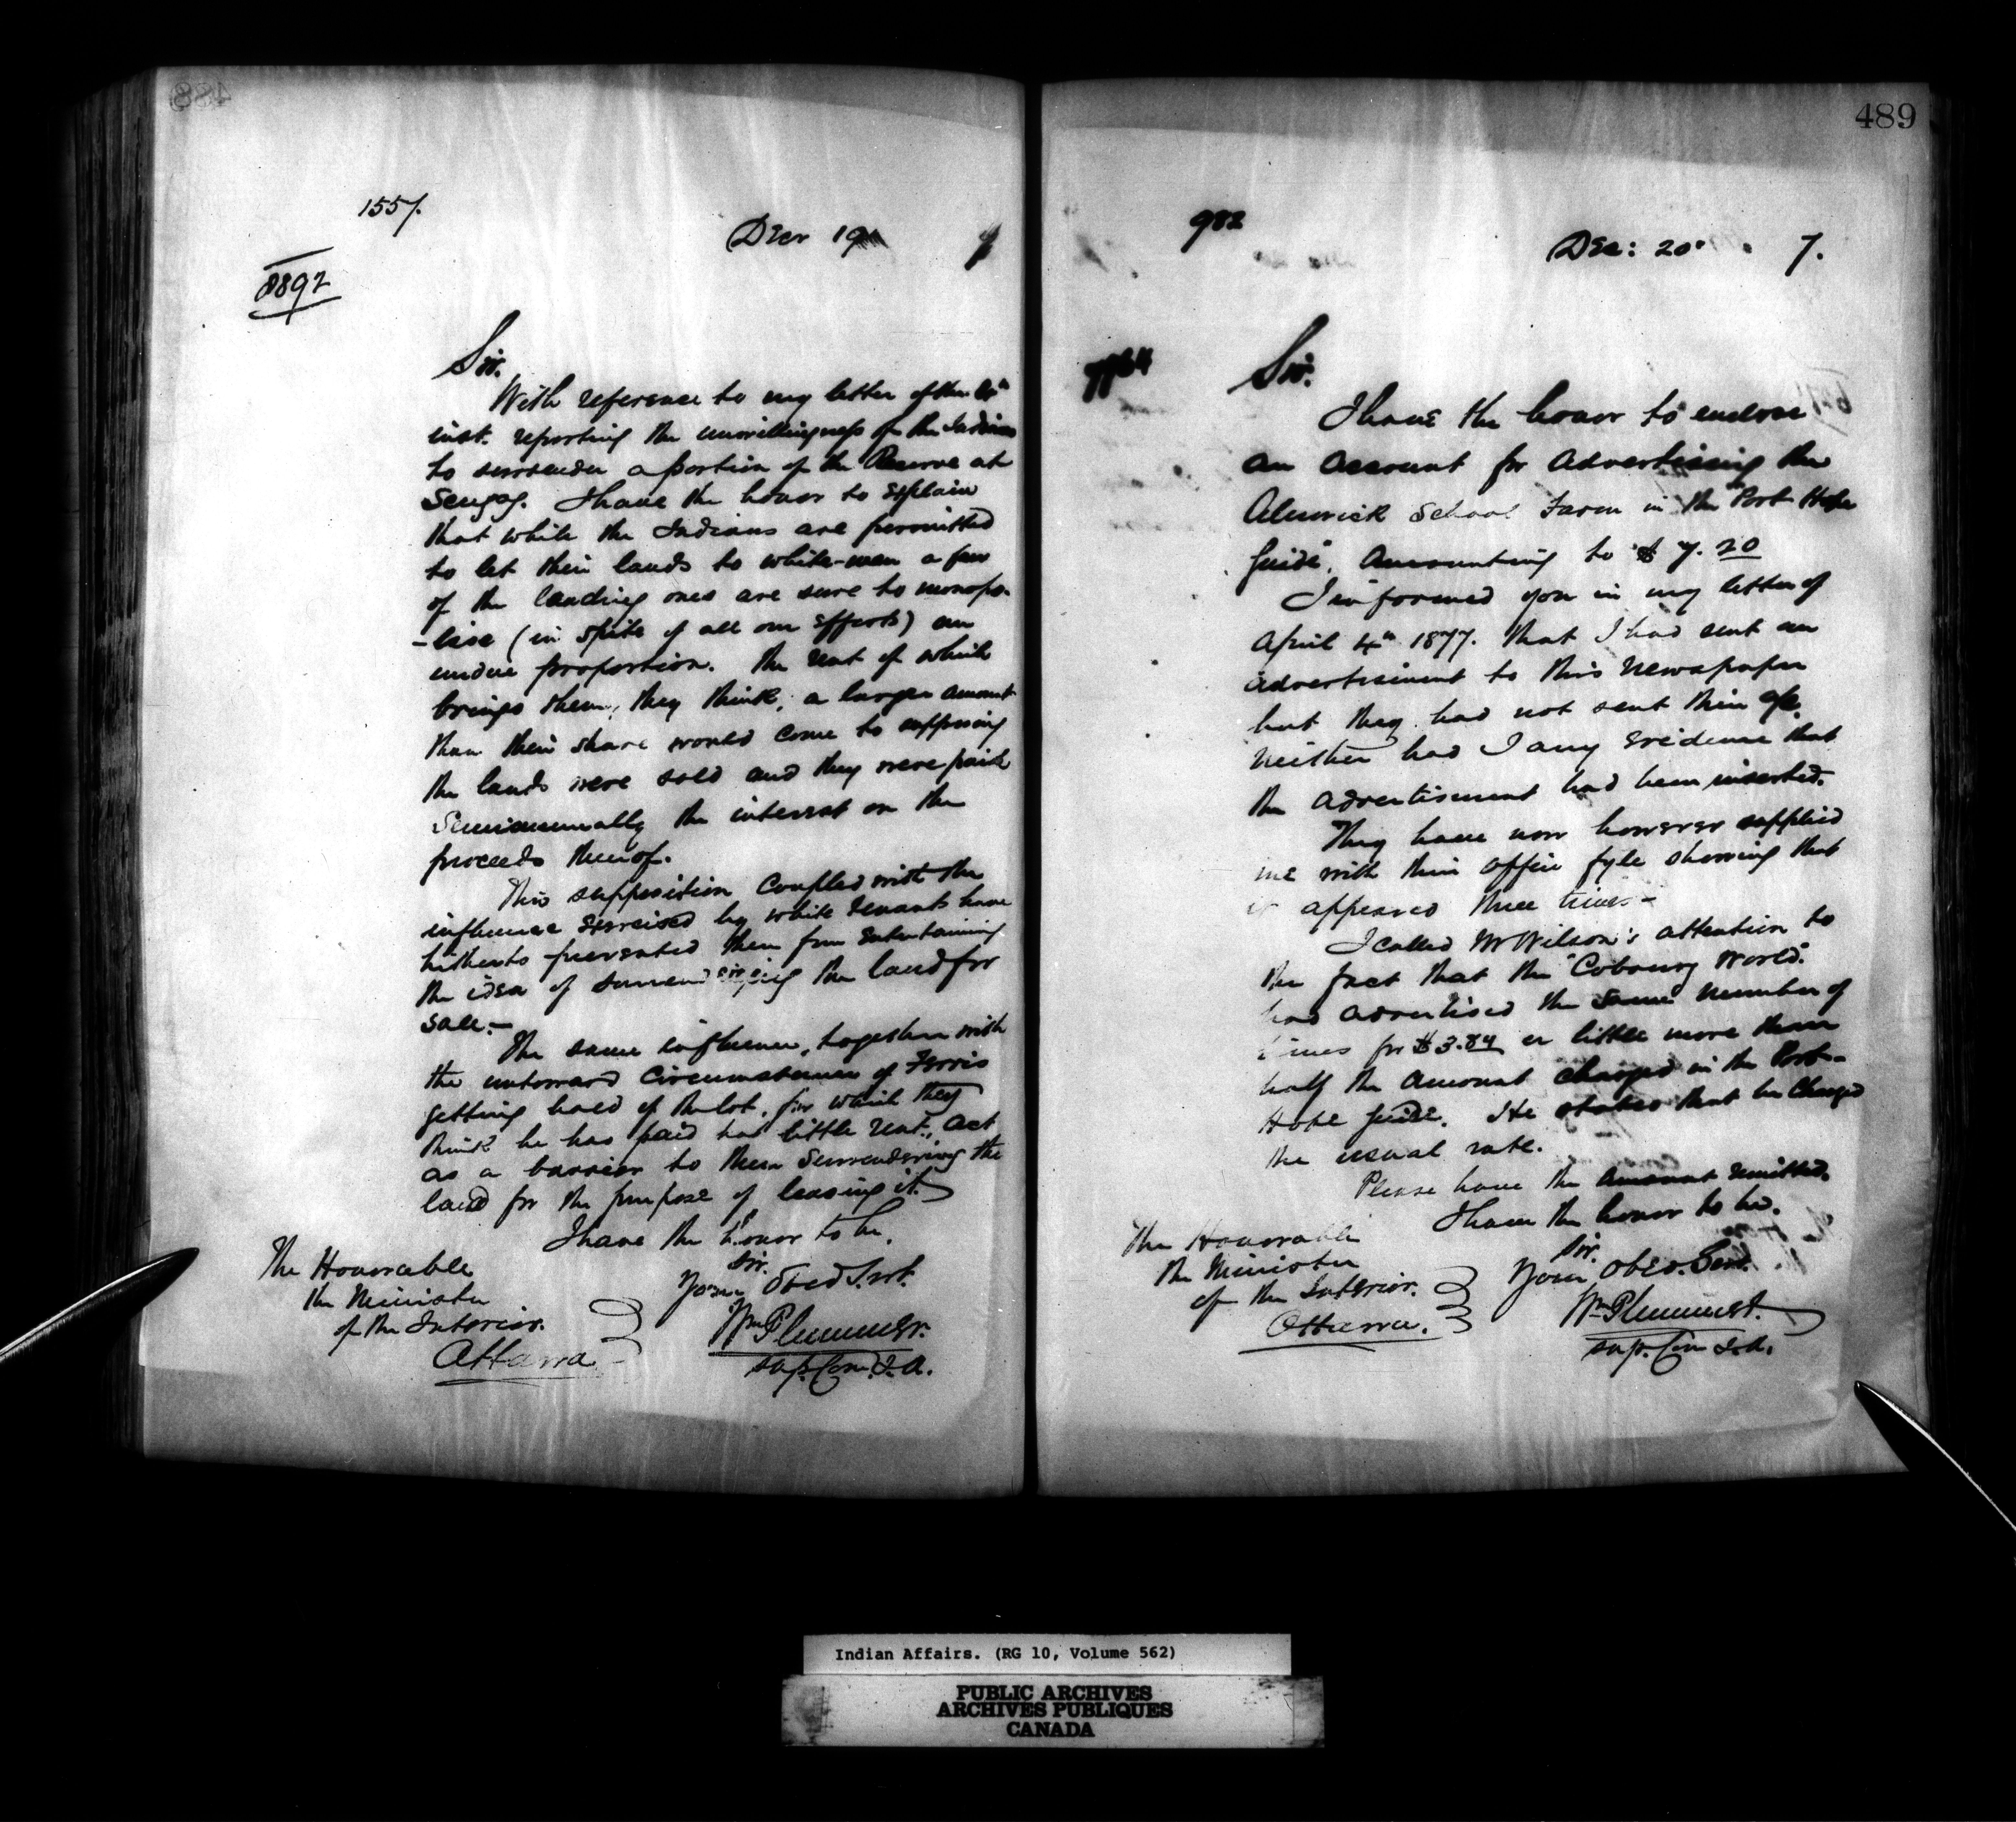 488
1557.
Decr 19 7
8892
Sir.
With reference to my letter of the
inst. reporting the unwillingness of the Indians
to surrender a portion of the Reserve at
Scugog. I have the honor to explain
that while the Indians are permitted
to let their lands to white-men a few
of the leading ones are sure to monopo-
-lise (in spite of all our efforts) an
undue proportion. The rent of which
brings them, they think, a larger amount
than their share would come to supposing
the lands were sold and they were paid
Semiannually the interest on the
proceeds thereof.
This supposition coupled with the
influence exercised by white tenants have
hitherto prevented them from entertaining
the idea of surrendering the land for
sale.—
The same influence, together with
the untoward circumstances of Ferris
getting hold of the lot, for which they
think he has paid too little rent, act
as a barrier to them surrendering the
land for the purpose of leasing it.
I have the honor to be,
Sir.
Your Obed Svt.
Wm Plummer.
Sup. Com. I. A.
The Honorable
the Minister
of the Interior.
Ottawa
489
982
Dec: 20 7.
Sir.
I have the honor to enclose
an account for advertising the
Alnwick School Farm in the "Port Hope
Guide", amounting to $7.20
I informed you in my letter of
April 4th 1877. that I had sent an
advertisement to this Newspaper
but they had not sent their a/c.
Neither had I any evidence that
the advertisment had been inserted.
They have now however supplied
me with their office fyle showing that
it appeared three times—
I called Mr Wilson's attention to
the fact that the "Cobourg World"
had advertised the same number of
times for $3.84 or little more than
half the amount charged in the Port-
Hope Guide. He states that he charged
the usual rate.
Please have the amount remitted.
I have the honor to be.
Sir.
Your Obed. Servt.
Wm Plummer.
Sup. Com I.A.
The Honorable
the Minister
of the Interior.
Ottawa.
Indian Affairs. (RG 10, Volume 562)
PUBLIC ARCHIVES
ARCHIVES PUBLIQUES
CANADA